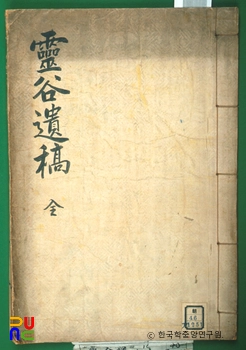 靈谷遺稿
全
ⓒ 한국학중앙연구원